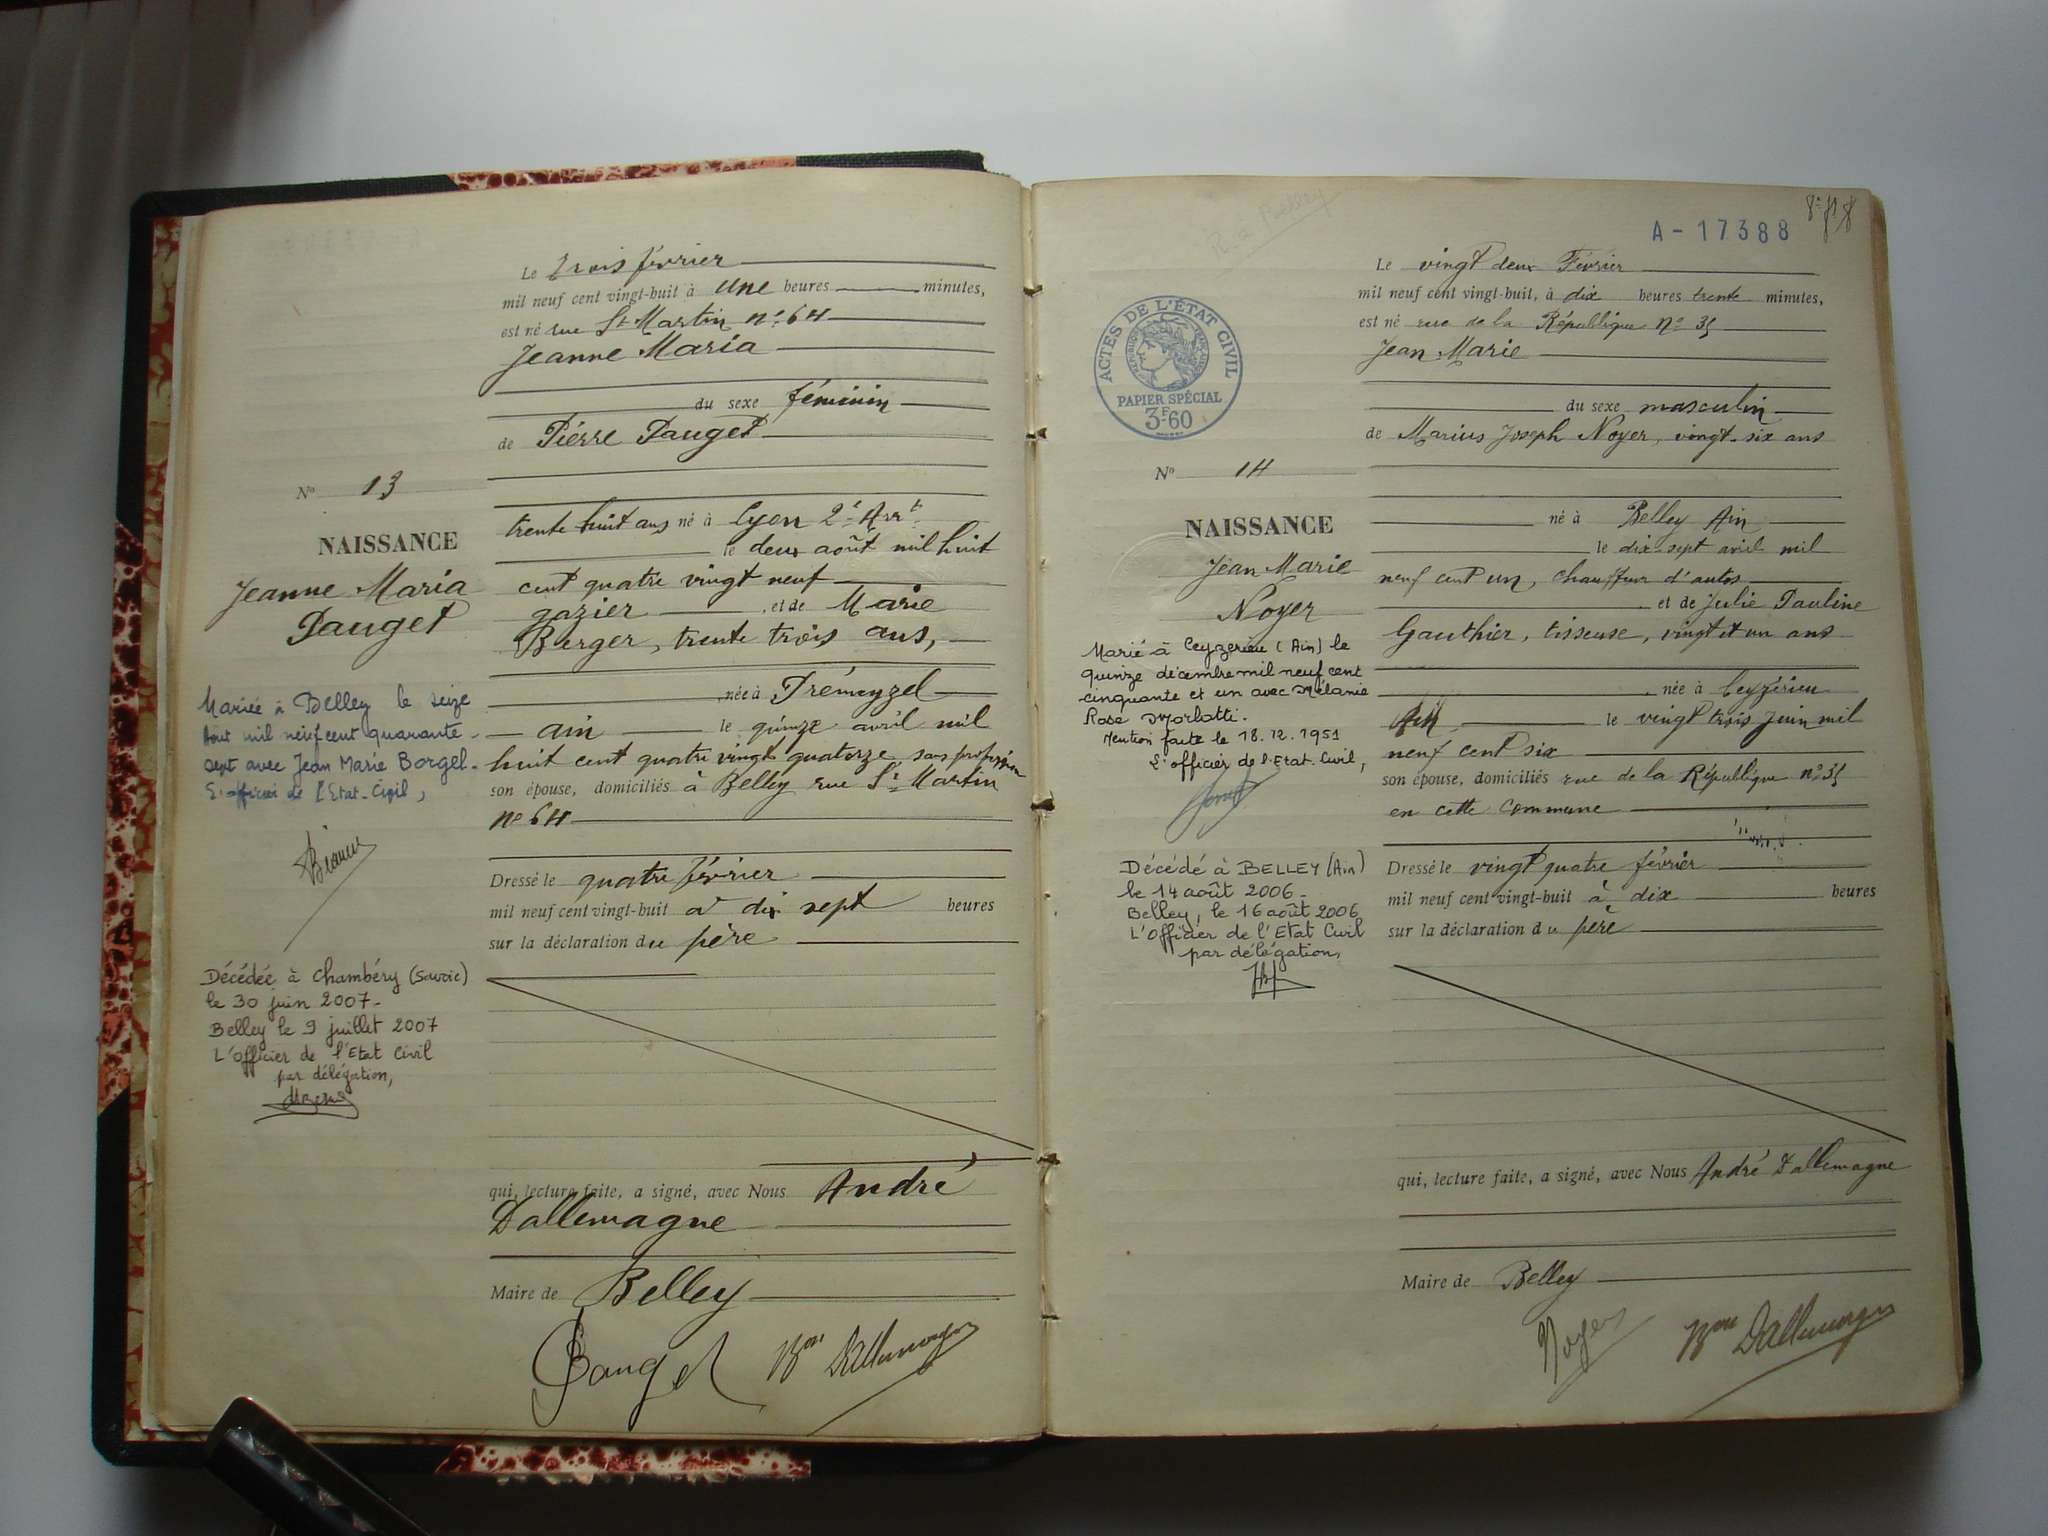 Le trois février
mil neuf cent vingt-huit à une heures minutes,
est né rue St Martin n° 64
Jeanne Maria
du sexe féminin
de Pierre Pauget
N° 13
trente huit ans né à Lyon 2e Arrt
NAISSANCE
le deux août mil huit
Jeanne Maria
cent quatre vingt neuf
Pauget
gazier , et de Marie
Berger, trente trois ans,
née à Trémeyzel
Mariée à Belley le seize
Aout mil neuf cent quarante-
sept avec Jean Marie Borgel-
L'officier de l'Etat-Civil,
ain le quinze avril mil
huit cent quatre vingt quatorze, sans profession
son épouse, domiciliés à Belley rue St Martin
n° 64
Dressé le quatre février
mil neuf cent vingt-huit à dix sept heures
sur la déclaration du père
Décédée à Chambéry (Savoie)
le 30 juin 2007-
Belley le 9 juillet 2007
L'officier de l'Etat Civil
par délégation,
qui, lecture faite, a signé, avec Nous André
Dallemagne
Maire de Belley
Pauget Bon Dallemagne
R. à Belley
A-17388
Le vingt deux Février
mil neuf cent vingt-huit, à dix heures trente minutes,
est né rue de la République n° 35
Jean Marie
du sexe masculin
de Marius Joseph Noyer, vingt-six ans
ACTES DE L'ÉTAT CIVIL
PAPIER SPÉCIAL
3F60
N° 14
né à Belley Ain
NAISSANCE
le dix-sept avril mil
Jean Marie
neuf cent un, chauffeur d'autos
Noyer
et de Julie Pauline
Gauthier, tisseuse, vingt et un ans
née à Ceyzérieu
Ain le vingt trois Juin mil
neuf cent six
son épouse, domiciliés rue de la République n° 35
en cette commune
Marié à Ceyzerieu (Ain) le
quinze décembre mil neuf cent
cinquante et un avec Mélanie
Rose Morlotti.
Mention faite le 18.12.1951
L'officier de l'Etat-Civil,
Dressé le vingt quatre février
mil neuf cent vingt-huit à dix heures
sur la déclaration du père
Décédé à BELLEY (Ain)
le 14 août 2006-
Belley, le 16 août 2006
L'Officier de l'Etat Civil
par délégation,
qui, lecture faite, a signé, avec Nous André Dallemagne
Maire de Belley
Noyer Bon Dallemagne